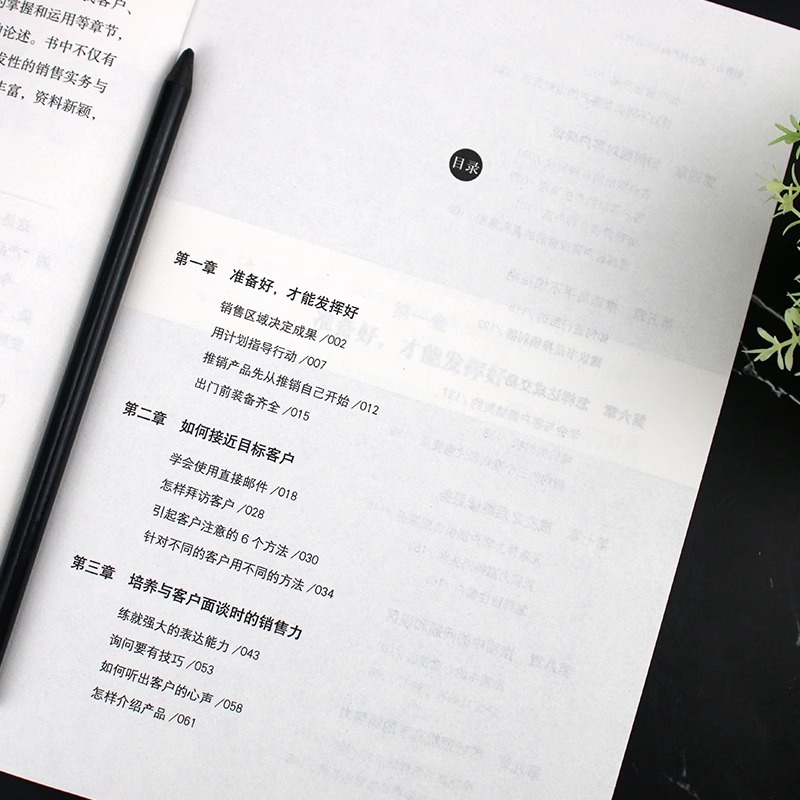 的掌握和运用等章节，
论述。书中不仅有
发性的销售实务与
丰富，资料新颖，
目录
第一章 准备好，才能发挥好
销售区域决定成果 /002
用计划指导行动 /007
推销产品先从推销自己开始 /012
出门前装备齐全 /015
第二章 如何接近目标客户
学会使用直接邮件 /018
怎样拜访客户 /028
引起客户注意的 6 个方法 /030
针对不同的客户用不同的方法 /034
第三章 培养与客户面谈时的销售力
练就强大的表达能力 /043
询问要有技巧 /053
如何听出客户的心声 /058
怎样介绍产品 /061